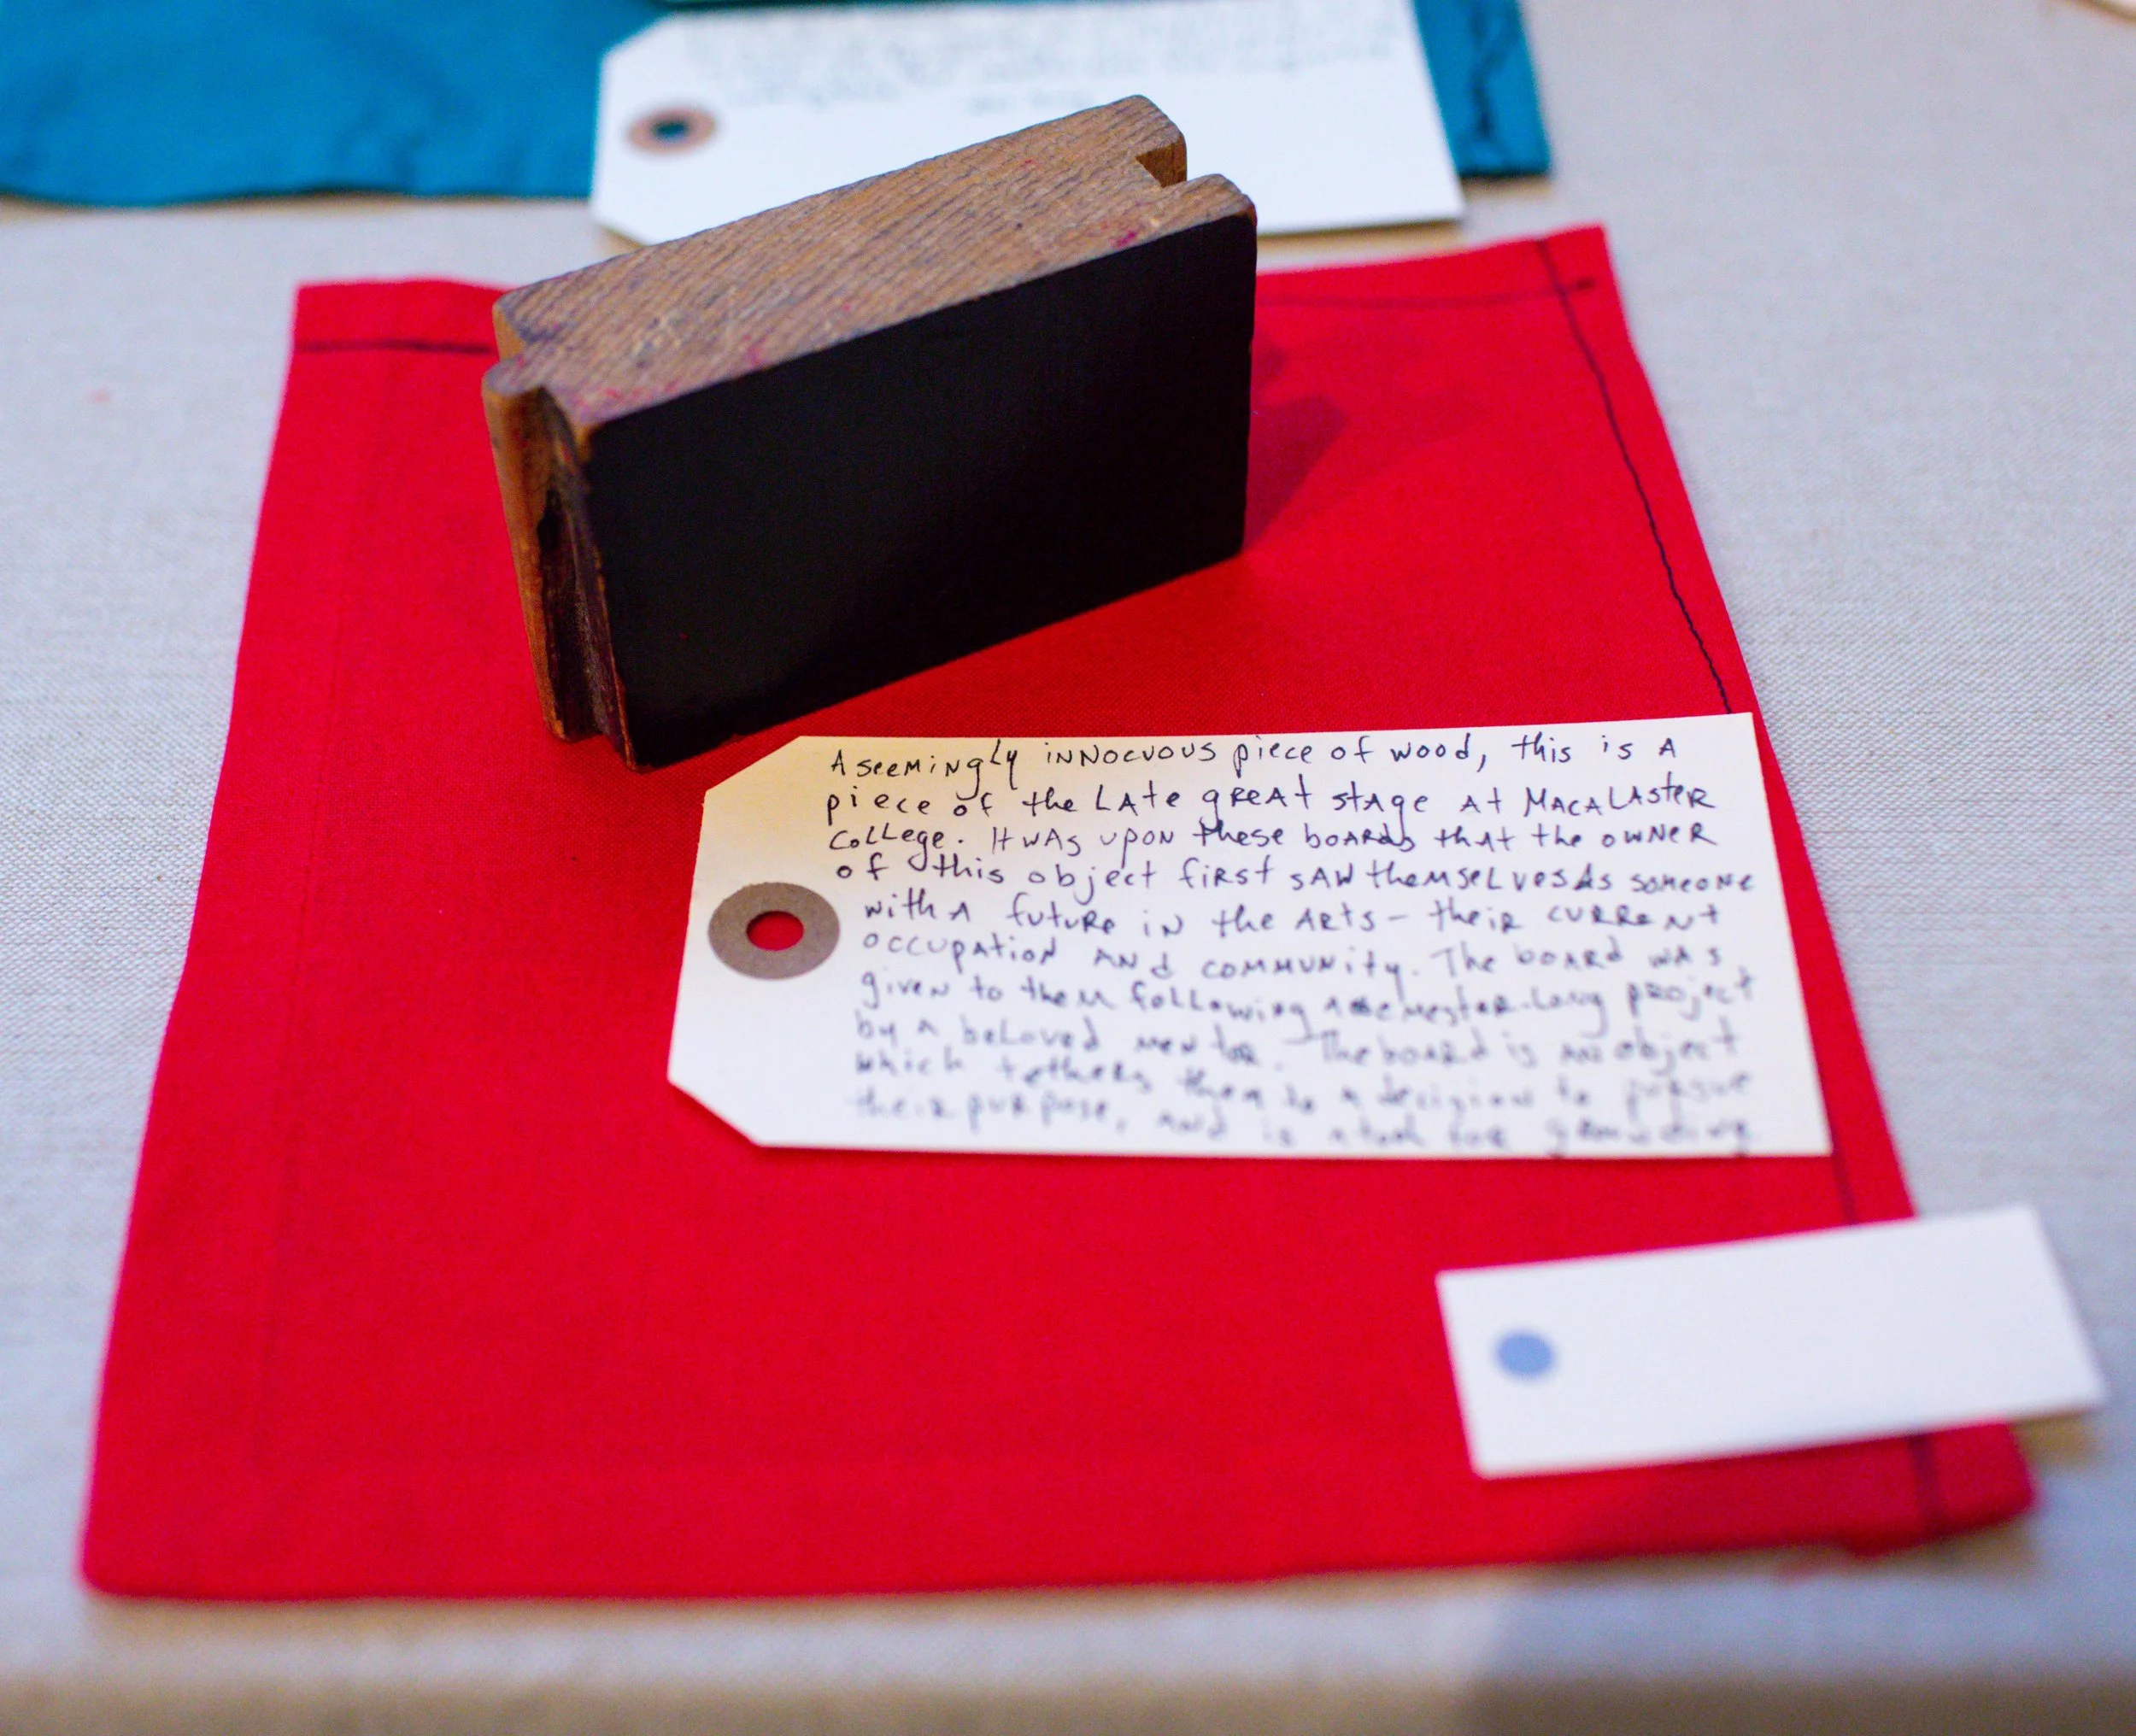 A seemingly innocuous piece of wood, this is A
piece of the Late great stage at Macalaster
College. It was upon these boards that the owner
of this object first saw themselves as someone
with A future in the Arts - their current
occupation and community. The board was
given to them following a semester-long project
by a beloved mentor. The board is an object
which tethers them to a decision to pursue
their purpose, and is a tool for grounding